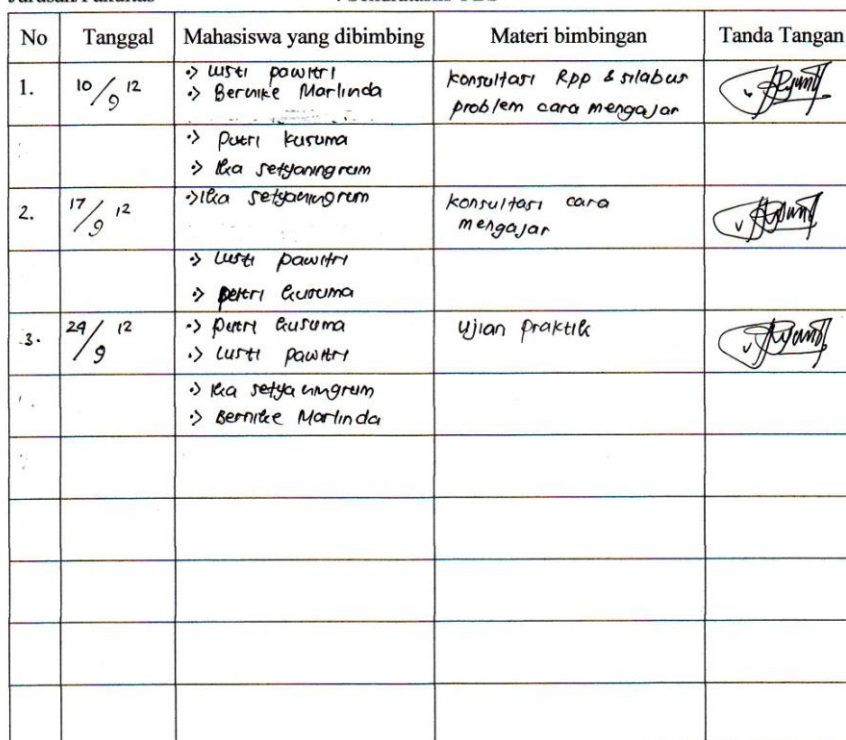 No Tanggal Mahasiswa yang dibimbing Materi bimbingan Tanda Tangan
1. 10/9 12 Lusti pawitri konsultasi Rpp & silabus
Bernike Marlinda problem cara mengajar
Putri kusuma
Ika setyaningrum
2. 17/9 12 Ika setyaningrum konsultasi cara
mengajar
Lusti pawitri
Putri kusuma
3. 24/9 12 Putri kusuma Ujian praktik
Lusti pawitri
Ika setyaningrum
Bernike Marlinda